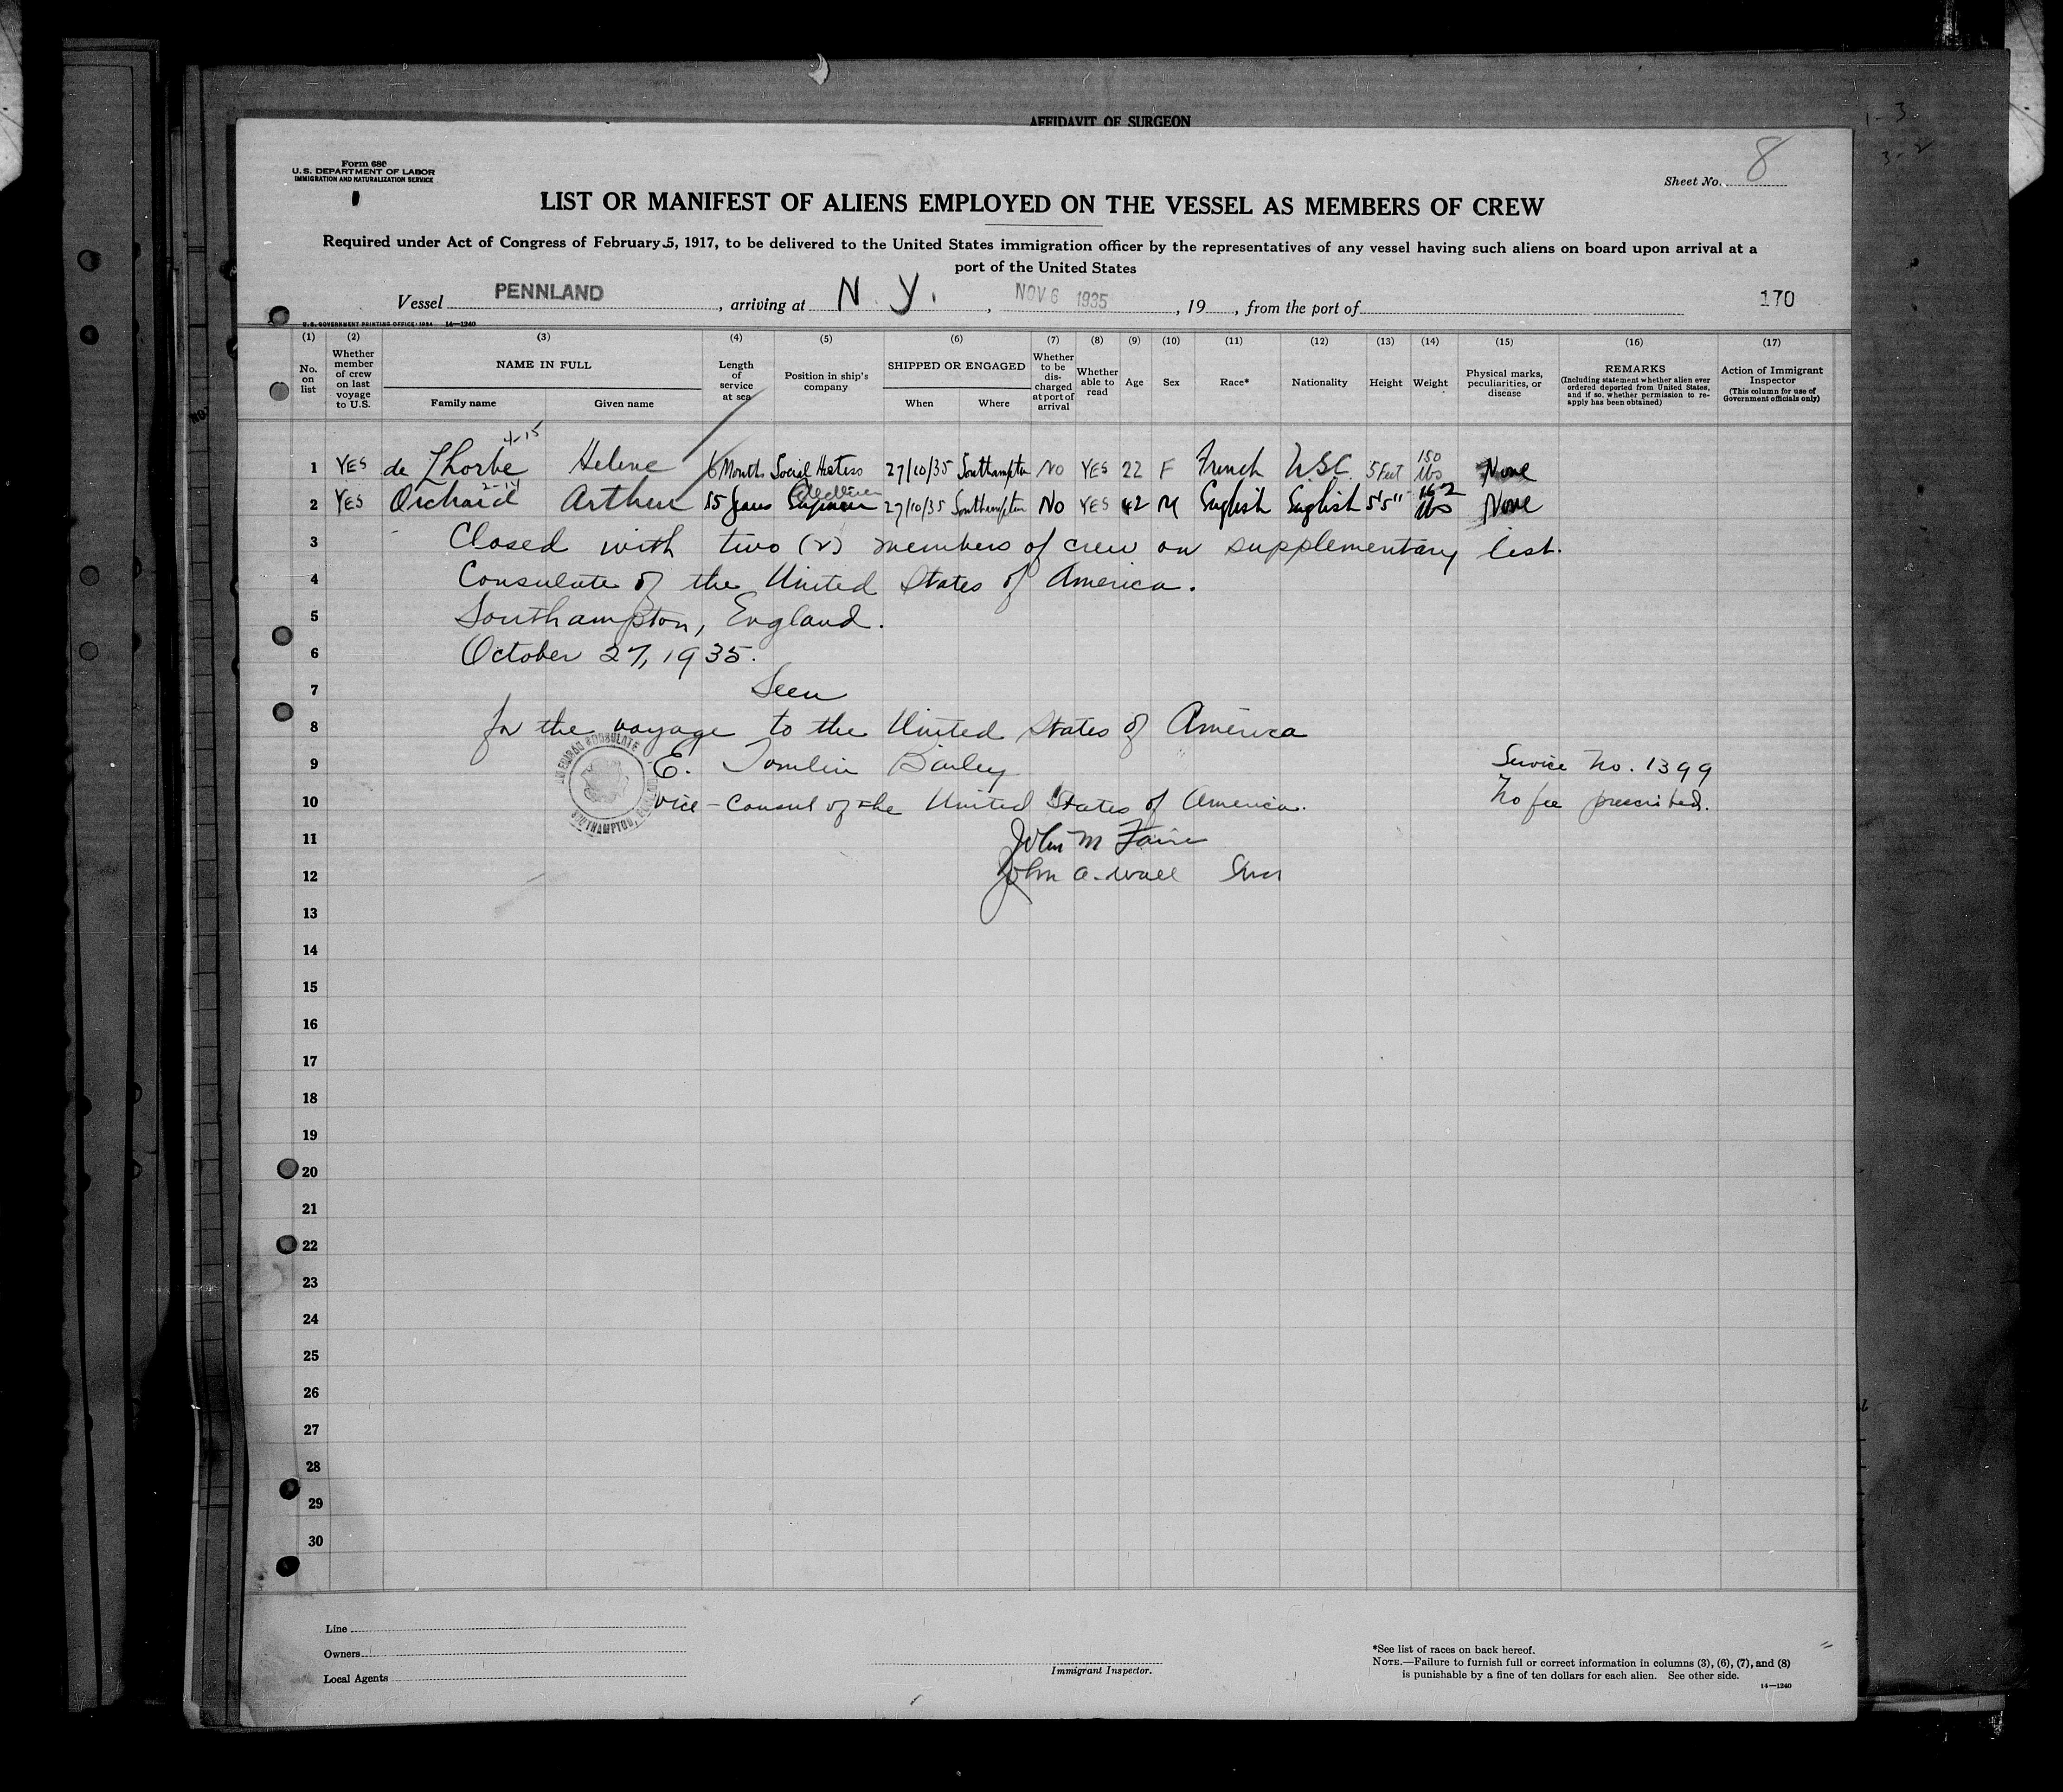 AFFIDAVIT OF SURGEON
Form 680
U.S. DEPARTMENT OF LABOR
IMMIGRATION AND NATURALIZATION SERVICE
Sheet No. 8
LIST OR MANIFEST OF ALIENS EMPLOYED ON THE VESSEL AS MEMBERS OF CREW
Required under Act of Congress of February 5, 1917, to be delivered to the United States immigration officer by the representatives of any vessel having such aliens on board upon arrival at a
port of the United States
Vessel PENNLAND, arriving at N. Y., NOV 6 1935, 19, from the port of 170
U.S. GOVERNMENT PRINTING OFFICE: 1934 14—1240
(1) (2) (3) (4) (5) (6) (7) (8) (9) (10) (11) (12) (13) (14) (15) (16) (17)
No. on list
Whether member of crew on last voyage to U.S.
NAME IN FULL
Family name
Given name
Length of service at sea
Position in ship's company
SHIPPED OR ENGAGED
When
Where
Whether to be discharged at port of arrival
Whether able to read
Age
Sex
Race*
Nationality
Height
Weight
Physical marks, peculiarities, or disease
REMARKS
(Including statement whether alien ever ordered deported from United States, and if so, whether permission to reapply has been obtained)
Action of Immigrant Inspector
(This column for use of Government officials only)
4-15
1 YES de Zhorbe Helene 6 Months Social Hostess 27/10/35 Southampton NO YES 22 F French U.S.C. 5 Feet 150 lbs None
2-14
2 YES Orchard Arthur 15 Years 27/10/35 Southampton No YES 42 M English English 5'5" 162 lbs None
3 Closed with two (2) members of crew on supplementary list.
4 Consulate of the United States of America.
5 Southampton, England.
6 October 27, 1935.
7 Seen
8 for the voyage to the United States of America
9 E. Tomlin Bailey Service No. 1399
10 Vice-Consul of the United States of America. No fee prescribed.
AMERICAN CONSULATE
SOUTHAMPTON, ENGLAND
11 John M
12 John A. Wall
13
14
15
16
17
18
19
20
21
22
23
24
25
26
27
28
29
30
Line
Owners
Local Agents
Immigrant Inspector.
*See list of races on back hereof.
NOTE.—Failure to furnish full or correct information in columns (3), (6), (7), and (8)
is punishable by a fine of ten dollars for each alien. See other side.
14—1240